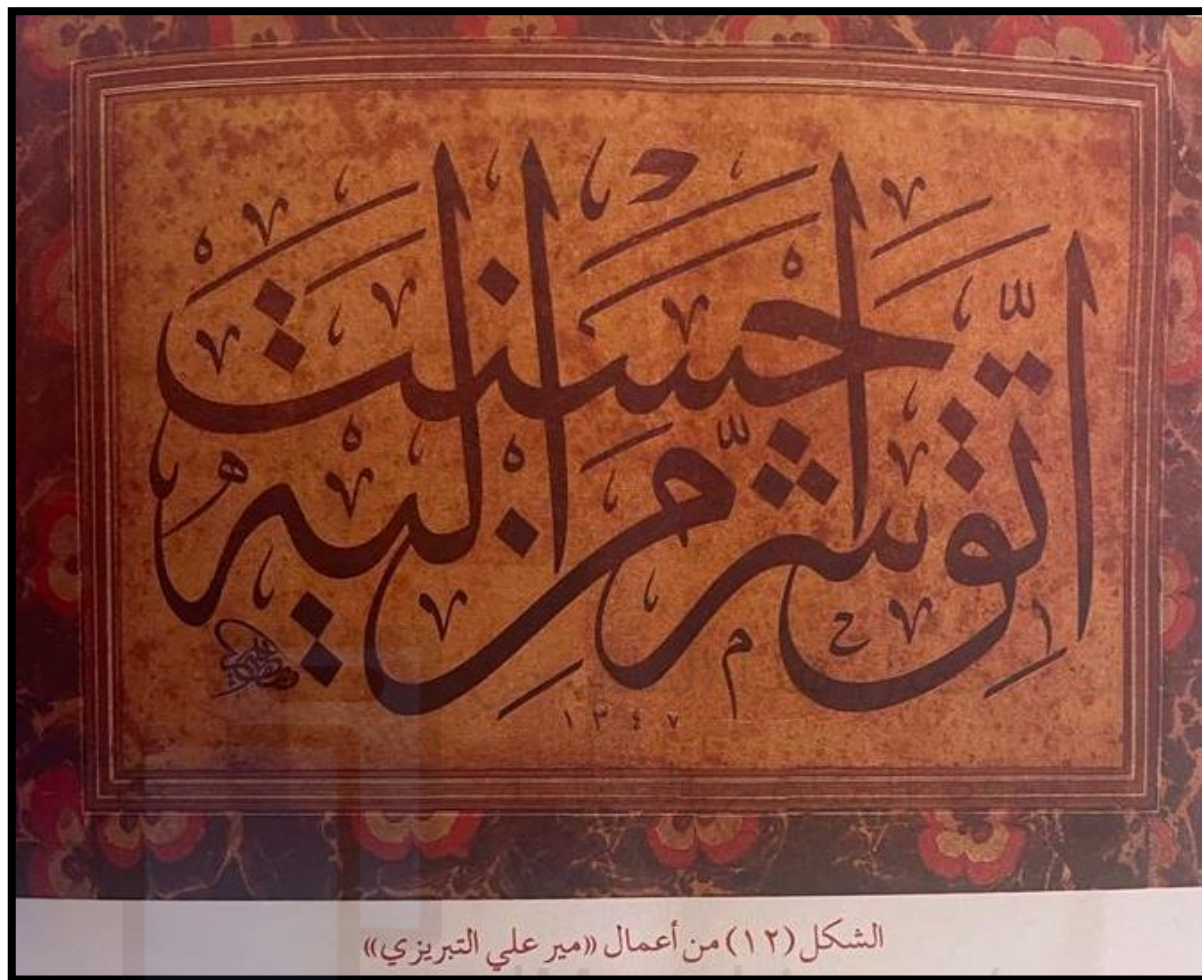 اتّق شرّ منِ احسنت اليه
١٣٤٧
الشكل (١٢) من أعمال «مير علي التبريزي»